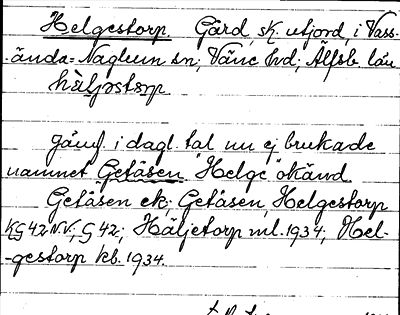 Helgestorp. Gård, sk. utjord, i Vass-
ända=Naglum sn; Väne hd; Älfsb. län
hàljəstɔrp
Jämf. i dagl. tal nu ej brukade
namnet Getåsen. "Helge" okänd
Getåsen ek; Getåsen, Helgestorp
KG 42 N.V.; G 42; Häljetorp ml. 1934; Hel-
-gestorp kb. 1934.